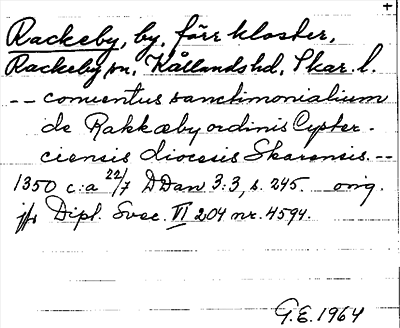 +
Rackeby, by, förr kloster,
Rackeby sn, Kållands hd, Skar. l.
-- conventus sanctimonialium
de Rakkæby ordinis Cyster-
ciensis diocesis Skarensis. --
1350 c:a 22/7 DDan 3:3, s. 245. orig.
jfr Dipl. Svec. VI 204 nr. 4594.
G.E. 1964